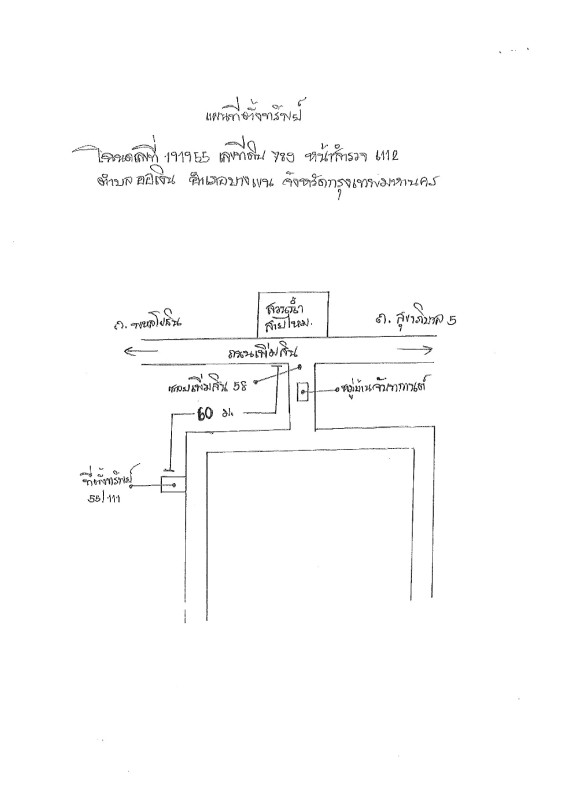 แผนที่ตั้งทรัพย์
โฉนดเลขที่ 191955 เลขที่ดิน 789 หน้าสำรวจ 6112
ตำบล ออเงิน อำเภอบางเขน จังหวัดกรุงเทพมหานคร
สวนน้ำ
สายไหม.
ถ. พหลโยธิน
ถ. สุขาภิบาล 5
ถนนเพิ่มสิน
ซอยเพิ่มสิน 58
หมู่บ้านจันทกานต์
60 ม.
ที่ตั้งทรัพย์
58/111